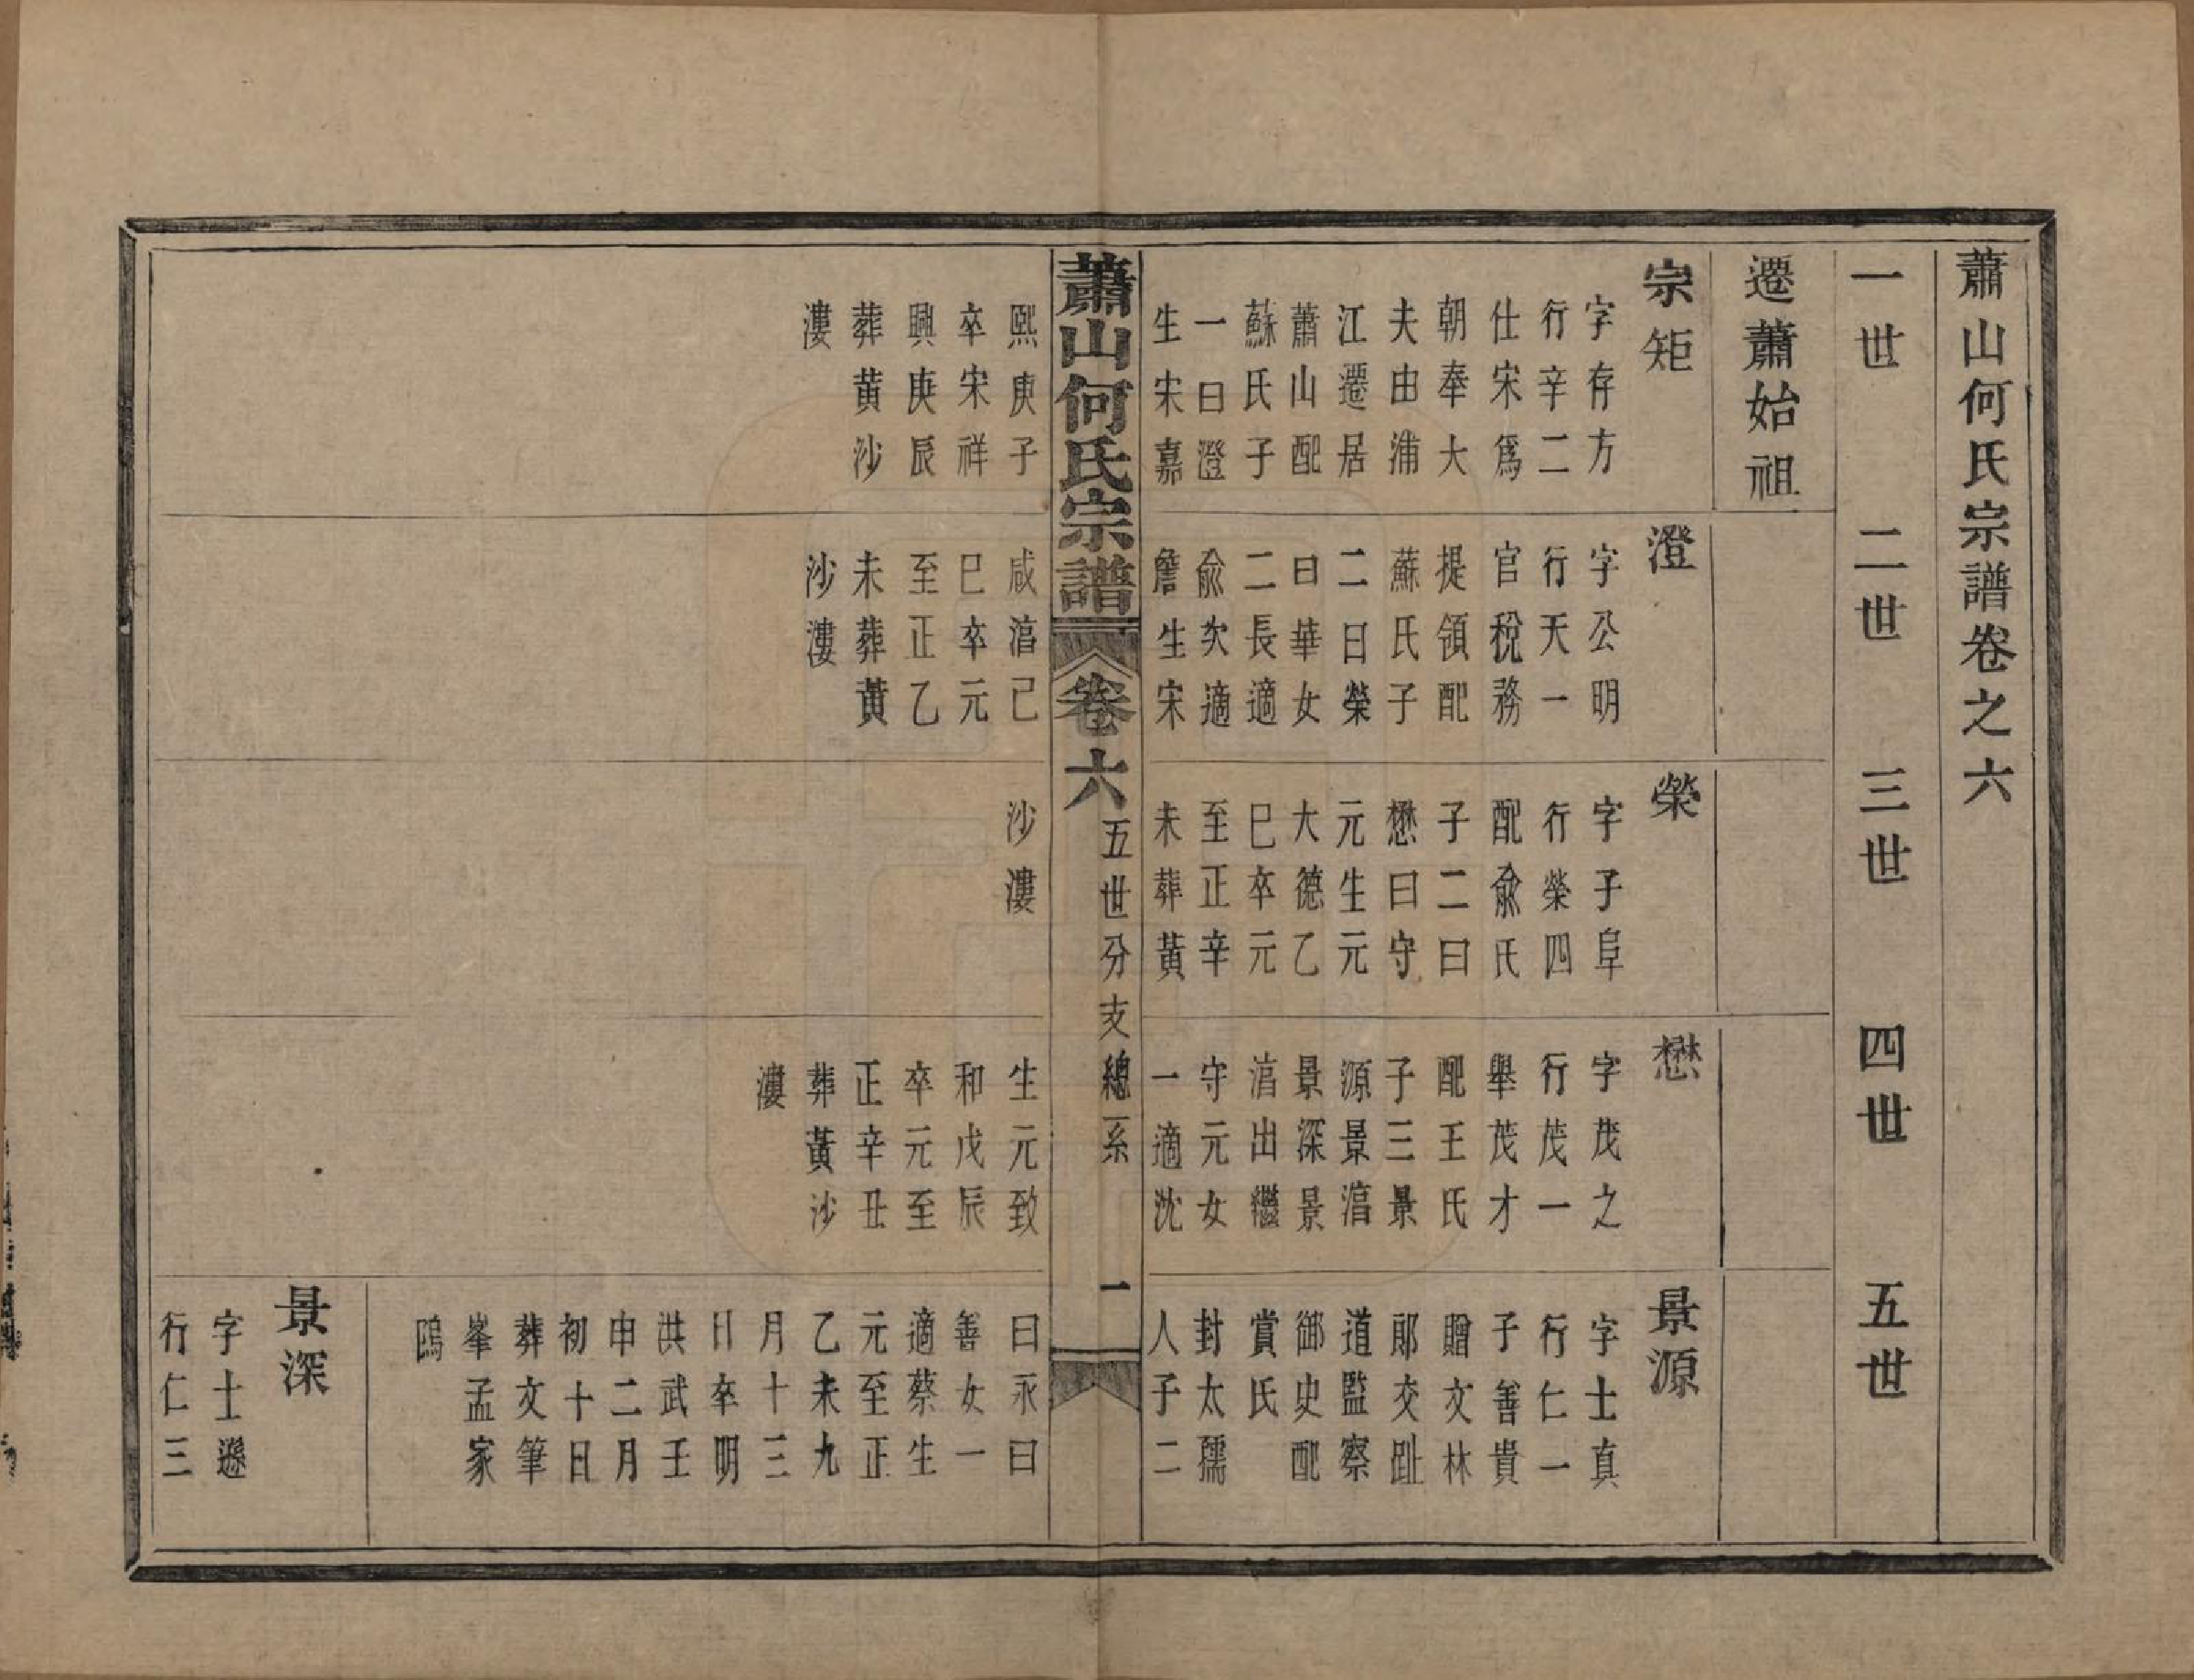 蕭山何氏宗譜卷之六
一世
二世
三世
四世
五世
遷蕭始祖
宗矩
字存方
行辛二
仕宋爲
朝奉大
夫由浦
江遷居
蕭山配
蘇氏子
一曰澄
生宋嘉
熙庚子
卒宋祥
興庚辰
葬黃沙
漊
澄
字公明
行天一
官稅務
提領配
蘇氏子
二曰榮
曰華女
二長適
俞次適
詹生宋
咸淳己
巳卒元
至正乙
未葬黃
沙漊
榮
字子阜
行榮四
配俞氏
子二曰
懋曰守
元生元
大德乙
巳卒元
至正辛
未葬黃
沙漊
懋
字茂之
行茂一
舉茂才
配王氏
子三景
源景淳
景深景
淳出繼
守元女
一適沈
生元致
和戊辰
卒元至
正辛丑
葬黃沙
漊
景源
字士真
行仁一
子善貴
贈文林
郞交趾
道監察
御史配
賞氏
封太孺
人子二
曰永曰
善女一
適蔡生
元至正
乙未九
月十三
日卒明
洪武壬
申二月
初十日
葬文筆
峯孟家
䲲
景深
字士遜
行仁三
蕭山何氏宗譜
卷六
五世分支總系
一